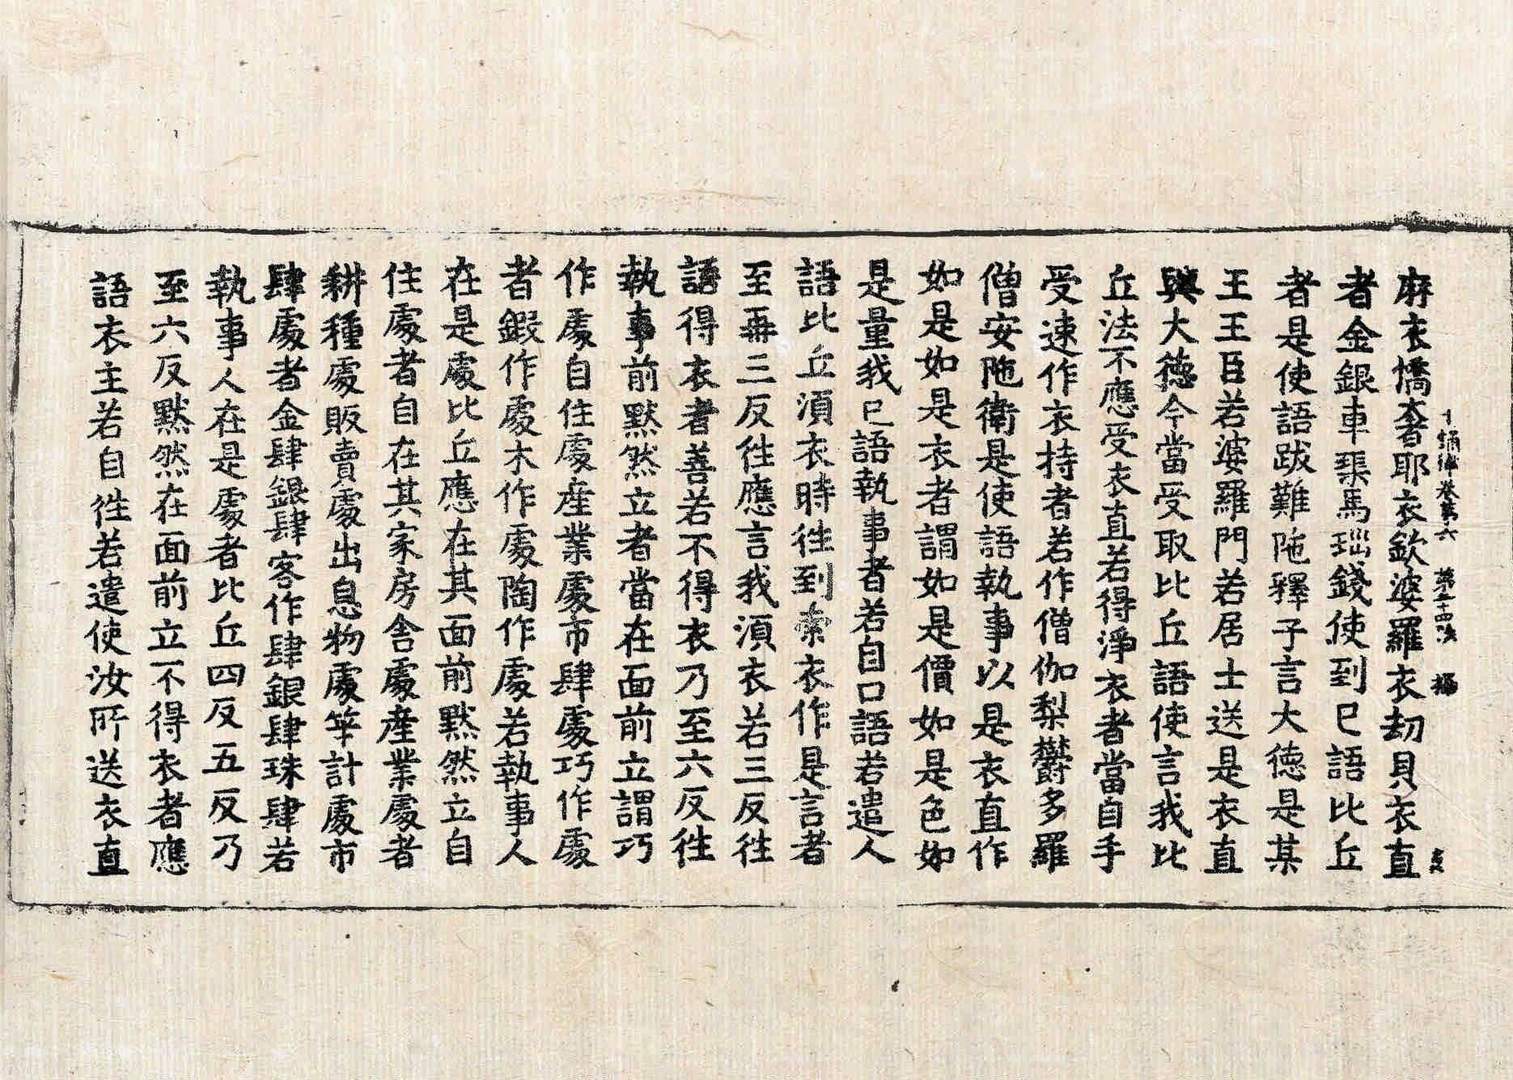 麻衣憍奢耶衣欽婆羅衣劫貝衣直
十誦律卷第六　第十四張　攝
者金銀車璖馬瑙錢使到已語比丘
者是使語跋難陁釋子言大德是某
王王臣若婆羅門若居士送是衣直
與大德今當受取比丘語使言我比
丘法不應受衣直若得淨衣者當自手
受速作衣持者若作僧伽梨欝多羅
僧安陁衛是使語執事以是衣直作
如是如是衣者謂如是價如是色如
是量我已語執事者若自口語若遣人
語比丘湏衣時徃到索衣作是言者
至再三反徃應言我湏衣若三反徃
語得衣者善若不得衣乃至六反徃
執事前默然立者當在面前立謂巧
作處自住處産業處市肆處巧作處
者鍛作處木作處陶作處若執事人
在是處比丘應在其面前默然立自
住處者自在其家房舎處産業處者
耕種處販賣處出息物處筭計處市
肆處者金肆銀肆客作肆銀肆珠肆若
執事人在是處者比丘四反五反乃
至六反默然在面前立不得衣者應
語衣主若自徃若遣使汝所送衣直